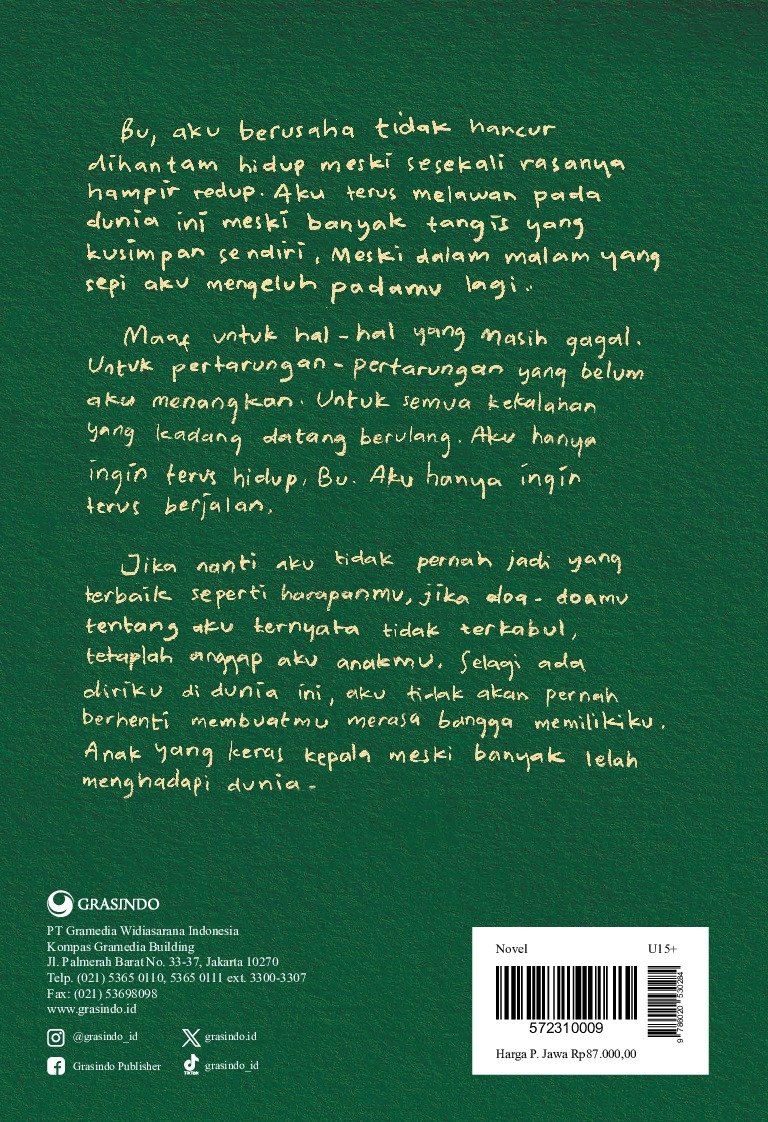 Bu, aku berusaha tidak hancur
dihantam hidup meski sesekali rasanya
hampir redup. Aku terus melawan pada
dunia ini meski banyak tangis yang
kusimpan sendiri. Meski dalam malam yang
sepi aku mengeluh padamu lagi.
Maaf untuk hal-hal yang masih gagal.
Untuk pertarungan-pertarungan yang belum
aku menangkan. Untuk semua kekalahan
yang kadang datang berulang. Aku hanya
ingin terus hidup, Bu. Aku hanya ingin
terus berjalan.
Jika nanti aku tidak pernah jadi yang
terbaik seperti harapanmu, jika doa-doamu
tentang aku ternyata tidak terkabul,
tetaplah anggap aku anakmu. Selagi ada
diriku di dunia ini, aku tidak akan pernah
berhenti membuatmu merasa bangga memilikiku.
Anak yang keras kepala meski banyak lelah
menghadapi dunia-
GRASINDO
PT Gramedia Widiasarana Indonesia
Kompas Gramedia Building
Jl. Palmerah Barat No. 33-37, Jakarta 10270
Telp. (021) 5365 0110, 5365 0111 ext. 3300-3307
Fax: (021) 53698098
www.grasindo.id
@grasindo_id
grasindo.id
Grasindo Publisher
TikTok
grasindo_id
Novel
U15+
572310009
9 786020 530284
Harga P. Jawa Rp87.000,00